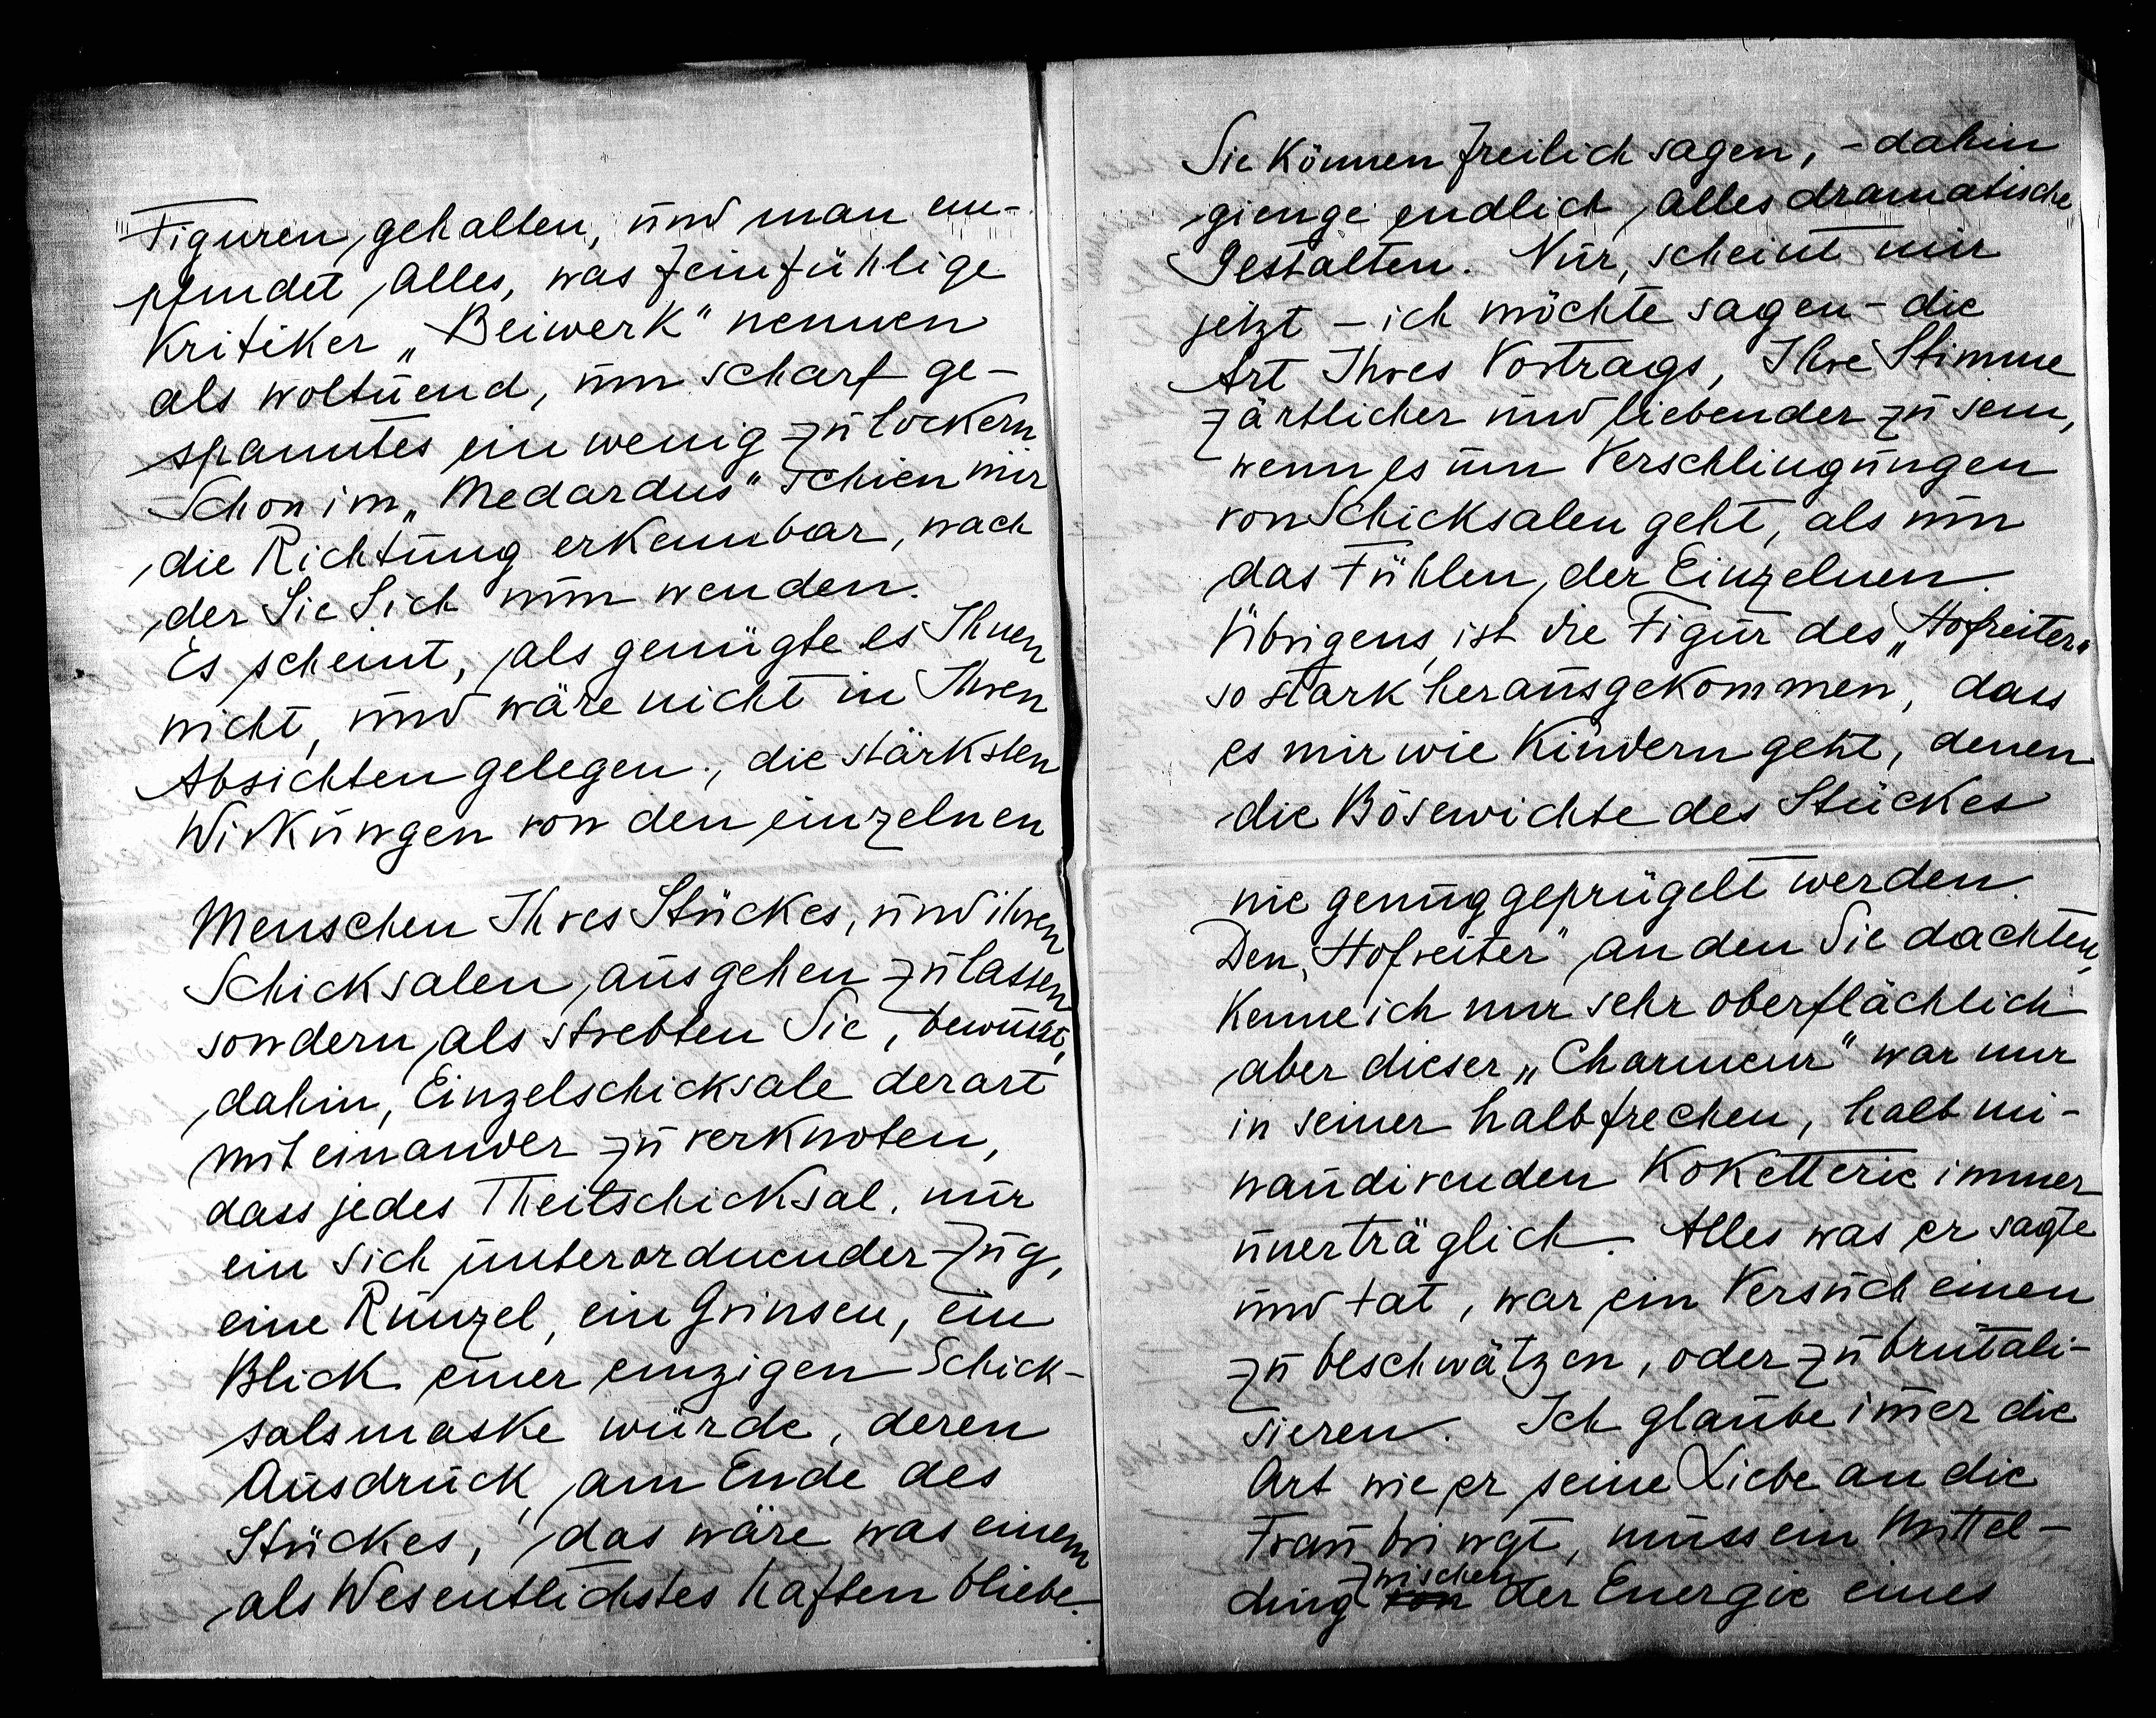 Figuren, gehalten, und man em-
pfindet Alles, was feinfühlige
Kritiker „Beiwerk" nennen
als woltuend, um scharf ge-
spanntes ein wenig zu lockern
Schon im „Medardus" schien mir
die Richtung erkennbar, nach
der Sie Sich nun wenden.
Es scheint, als genügte es Ihnen
nicht, und wäre nicht in Ihren
Absichten gelegen, die stärksten
Wirkungen von den einzelnen
Menschen Ihres Stückes, und ihren
Schicksalen, ausgehen zu lassen
sondern als strebten Sie, bewusst,
dahin, Einzelschicksale derart
mit einander zu verknoten,
dass jedes Theilschicksal, nur
ein Sich unterordnender Zug,
eine Runzel, ein Grinsen, ein
Blick einer einzigen Schick-
salsmaske würde, deren
Ausdruck, am Ende des
Stückes, das wäre was einem
als Wesentlichstes haften bliebe.
Sie können freilich sagen, – dahin
gienge endlich alles dramatische
Gestalten. Nur, scheint mir
jetzt – ich möchte sagen – die
Art Ihres Vortrags, Ihre Stimme
zärtlicher und liebender zu sein,
wenn es um Verschlingungen
von Schicksalen geht, als um
das Fühlen, der Einzelnen
Übrigens, ist die Figur des „Hofreiter"
so stark herausgekommen, dass
es mir wie Kindern geht, denen
die Bösewichte des Stückes
nie genug geprügelt werden
Den „Hofreiter" an den Sie dachten,
kenne ich nur sehr oberflächlich
aber dieser „Charmeur" war mir
in seiner halb frechen, halb mi-
naudirenden Koketterie immer
unerträglich. Alles was er sagte
und tat, war ein Versuch einen
zu beschwätzen, oder zu brutali-
sieren. Ich glaube im̄er die
Art wie er seine Liebe an die
Frau bringt, muss ein Mittel-
ding zwischen der Energie eines